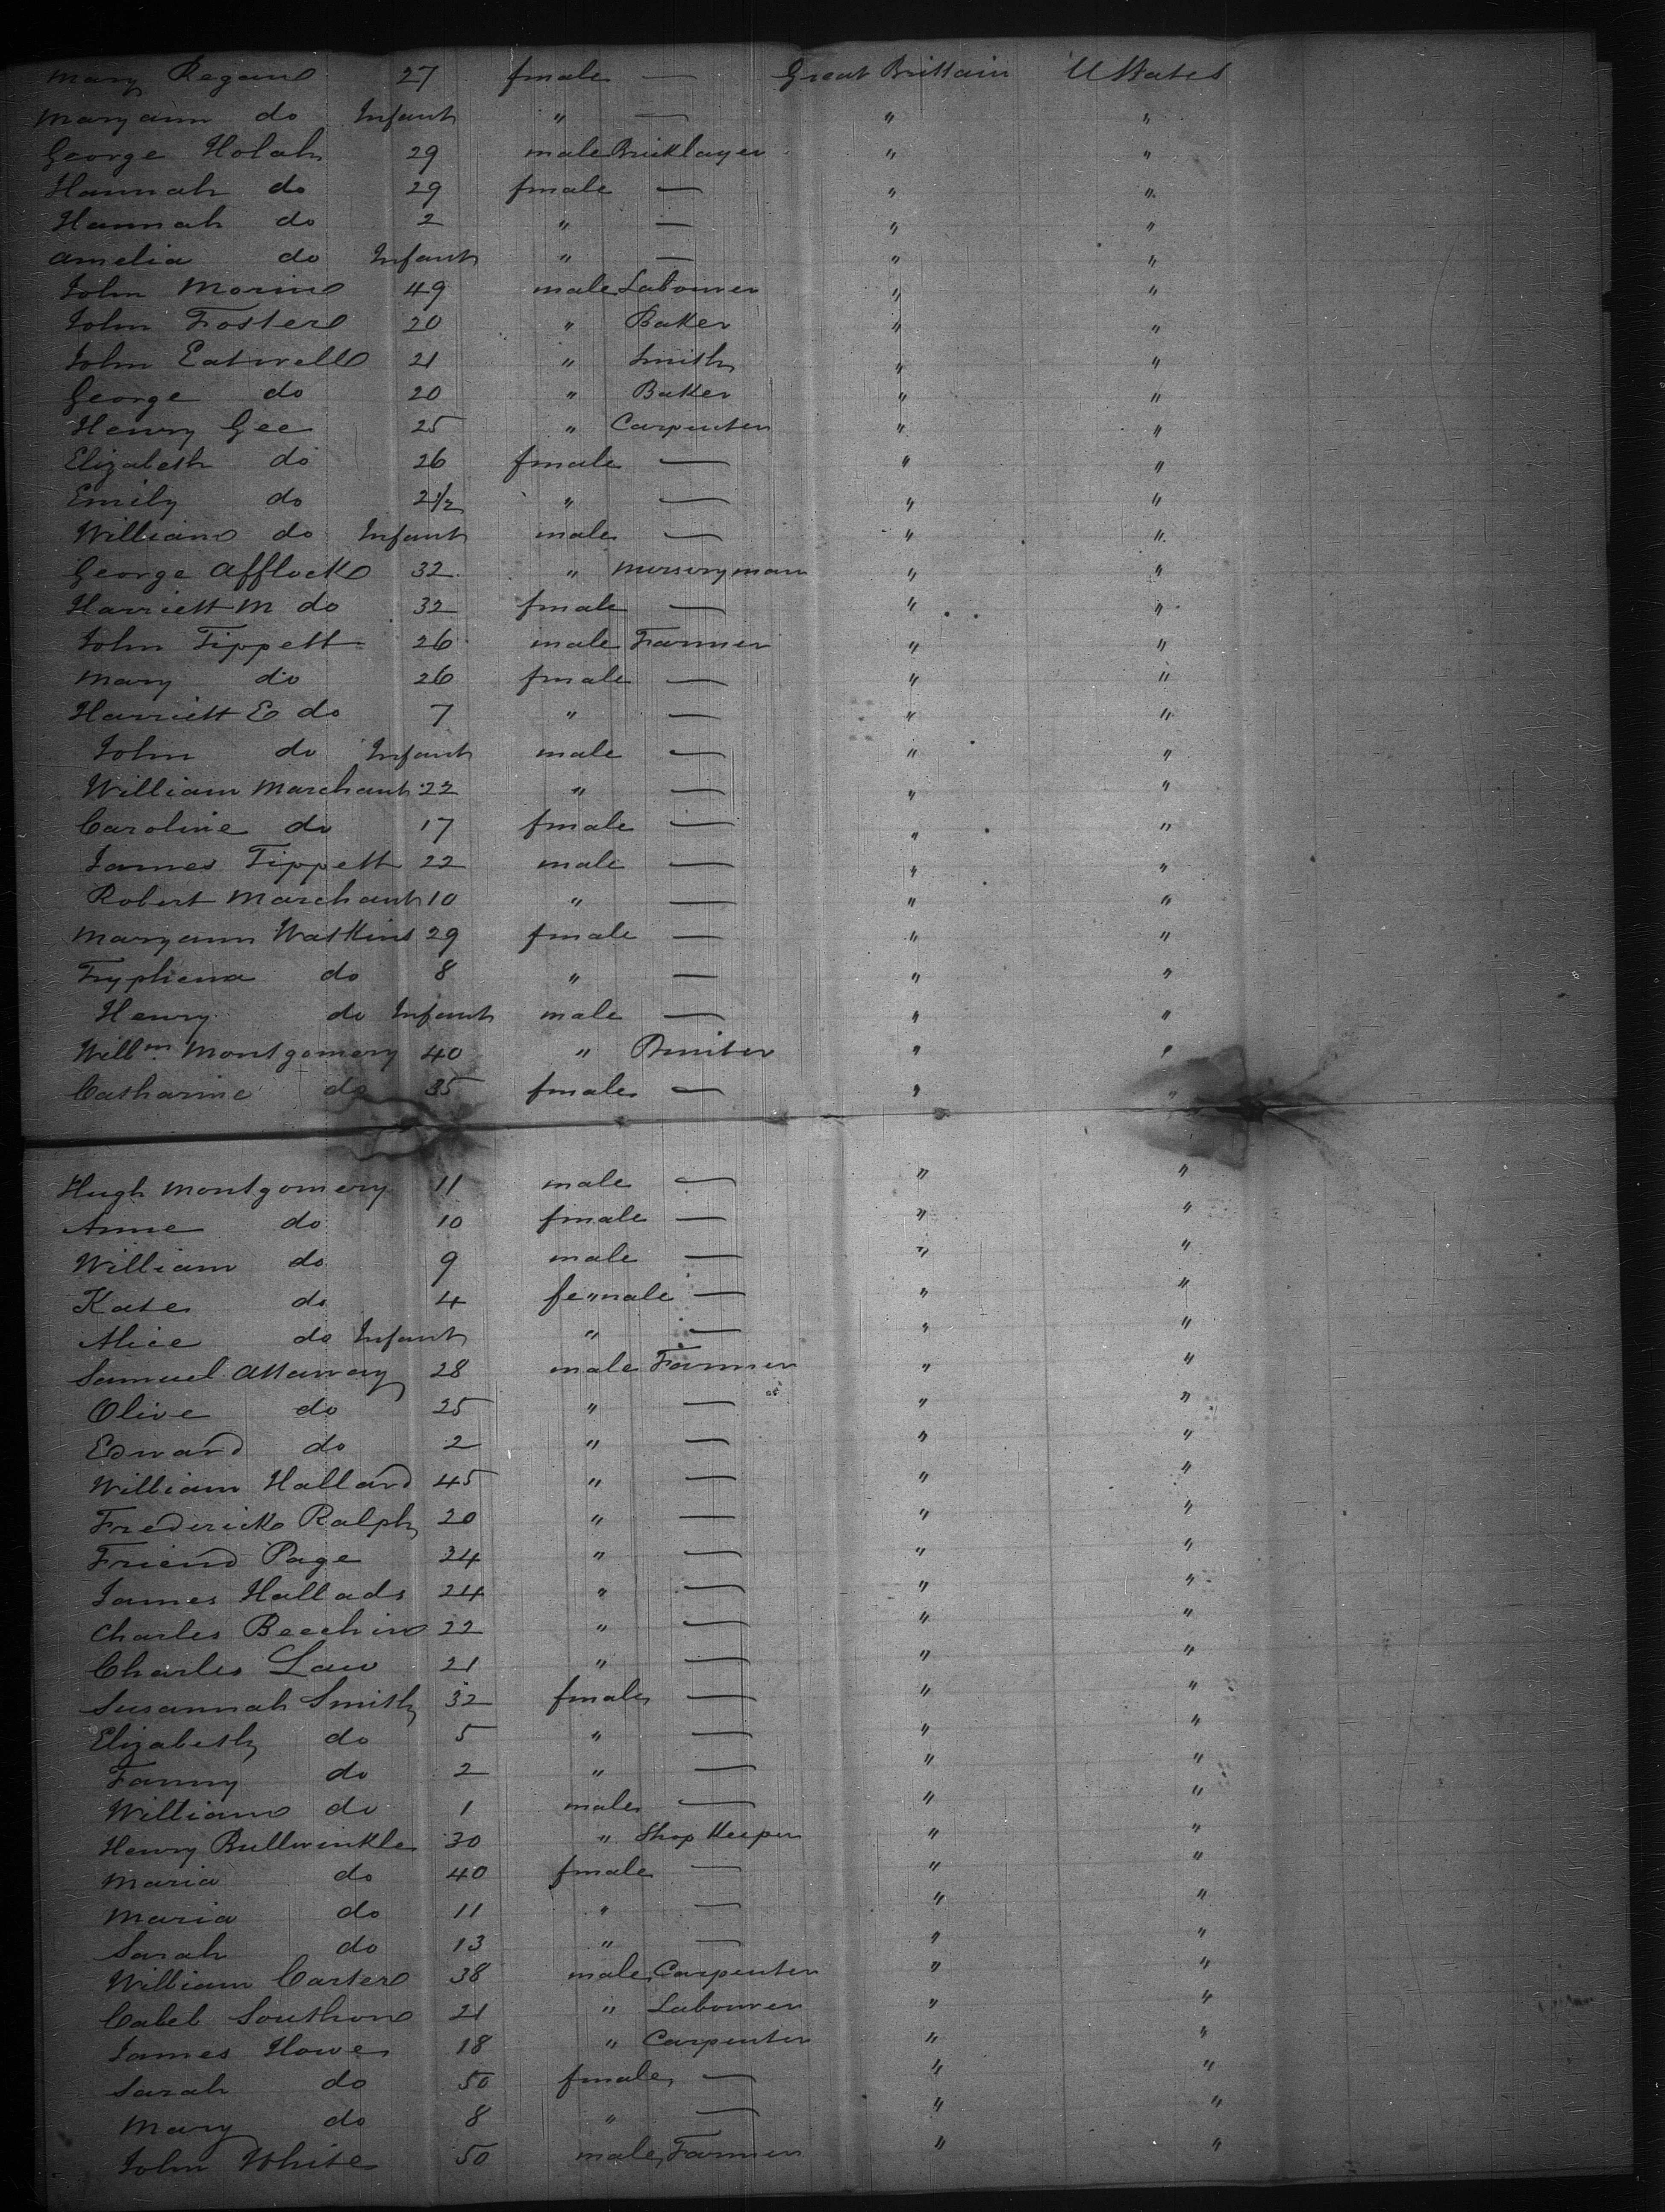 Mary Regand 27 fmale — Great Brittain U States
Maryann do Infant " — " "
George Holah 29 male Bricklayer " "
Hannah do 29 fmale — " "
Hannah do 2 " — " "
Amelia do Infant " — " "
John Morind 49 male Labourer " "
John Foster 20 " Baker " "
John Eatwell 21 " Smith " "
George do 20 " Baker " "
Henry Gee 25 " Carpenter " "
Elizabeth do 26 fmale — " "
Emily do 2 1/2 " — " "
William do Infant male — " "
George Afflock 32 " Nurseryman " "
Harriett M do 32 fmale — " "
John Tippett 26 male Farmer " "
Mary do 26 fmale — " "
Harriett E do 7 " — " "
John do Infant male — " "
William Marchant 22 " — " "
Caroline do 17 fmale — " "
James Tippett 22 male — " "
Robert Marchant 10 " — " "
Maryann Watkins 29 fmale — " "
Tryphena do 8 " — " "
Henry do Infant male — " "
Willm Montgomery 40 " " "
Catharine do 35 fmale — " "
Hugh Montgomery 11 male — " "
Anne do 10 fmale — " "
William do 9 male — " "
Kate do 4 female — " "
Alice do Infant " — " "
Samuel Attaway 28 male Farmer " "
Olive do 25 " — " "
Edward do 2 " — " "
William Hallard 45 " — " "
Frederick Ralph 20 " — " "
Friend Page 34 " — " "
James Hallads 24 " — " "
Charles Beechin 22 " — " "
Charles Law 21 " — " "
Susannah Smith 32 fmale — " "
Elizabeth do 5 " — " "
Fanny do 2 " — " "
William do 1 male — " "
Henry Bullwinkle 30 " Shop Keeper " "
Maria do 40 fmale — " "
Maria do 11 " — " "
Sarah do 13 " — " "
William Carter 38 male Carpenter " "
Caleb Southon 21 " Labourer " "
James Howe 18 " Carpenter " "
Sarah do 50 fmale — " "
Mary do 8 " — " "
John White 50 male Farmer " "